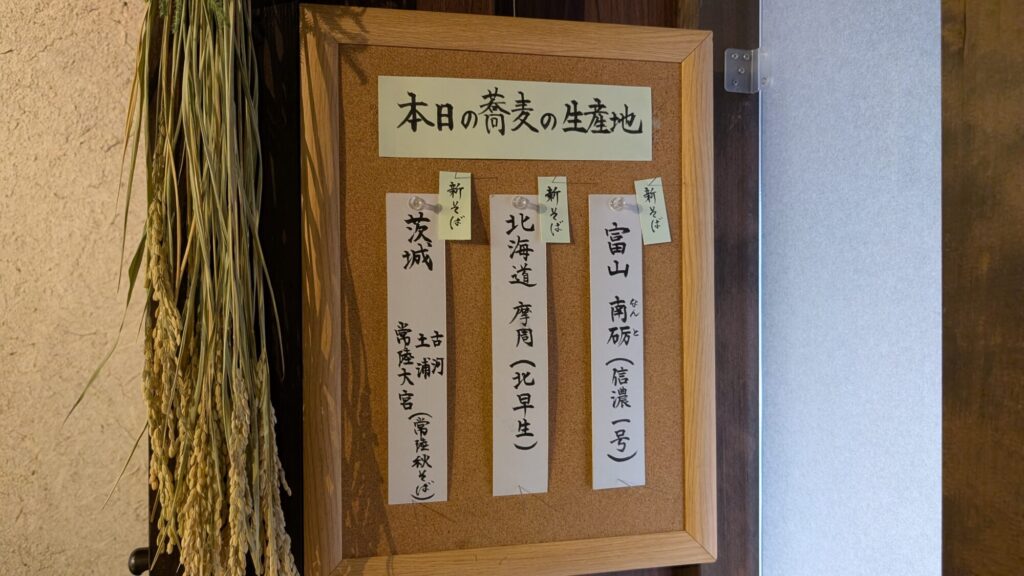 本日の蕎麦の生産地
新そば
富山 南砺(信濃一号)
なんと
新そば
北海道 摩周(北早生)
新そば
茨城
古河
土浦
常陸大宮(常陸秋そば)